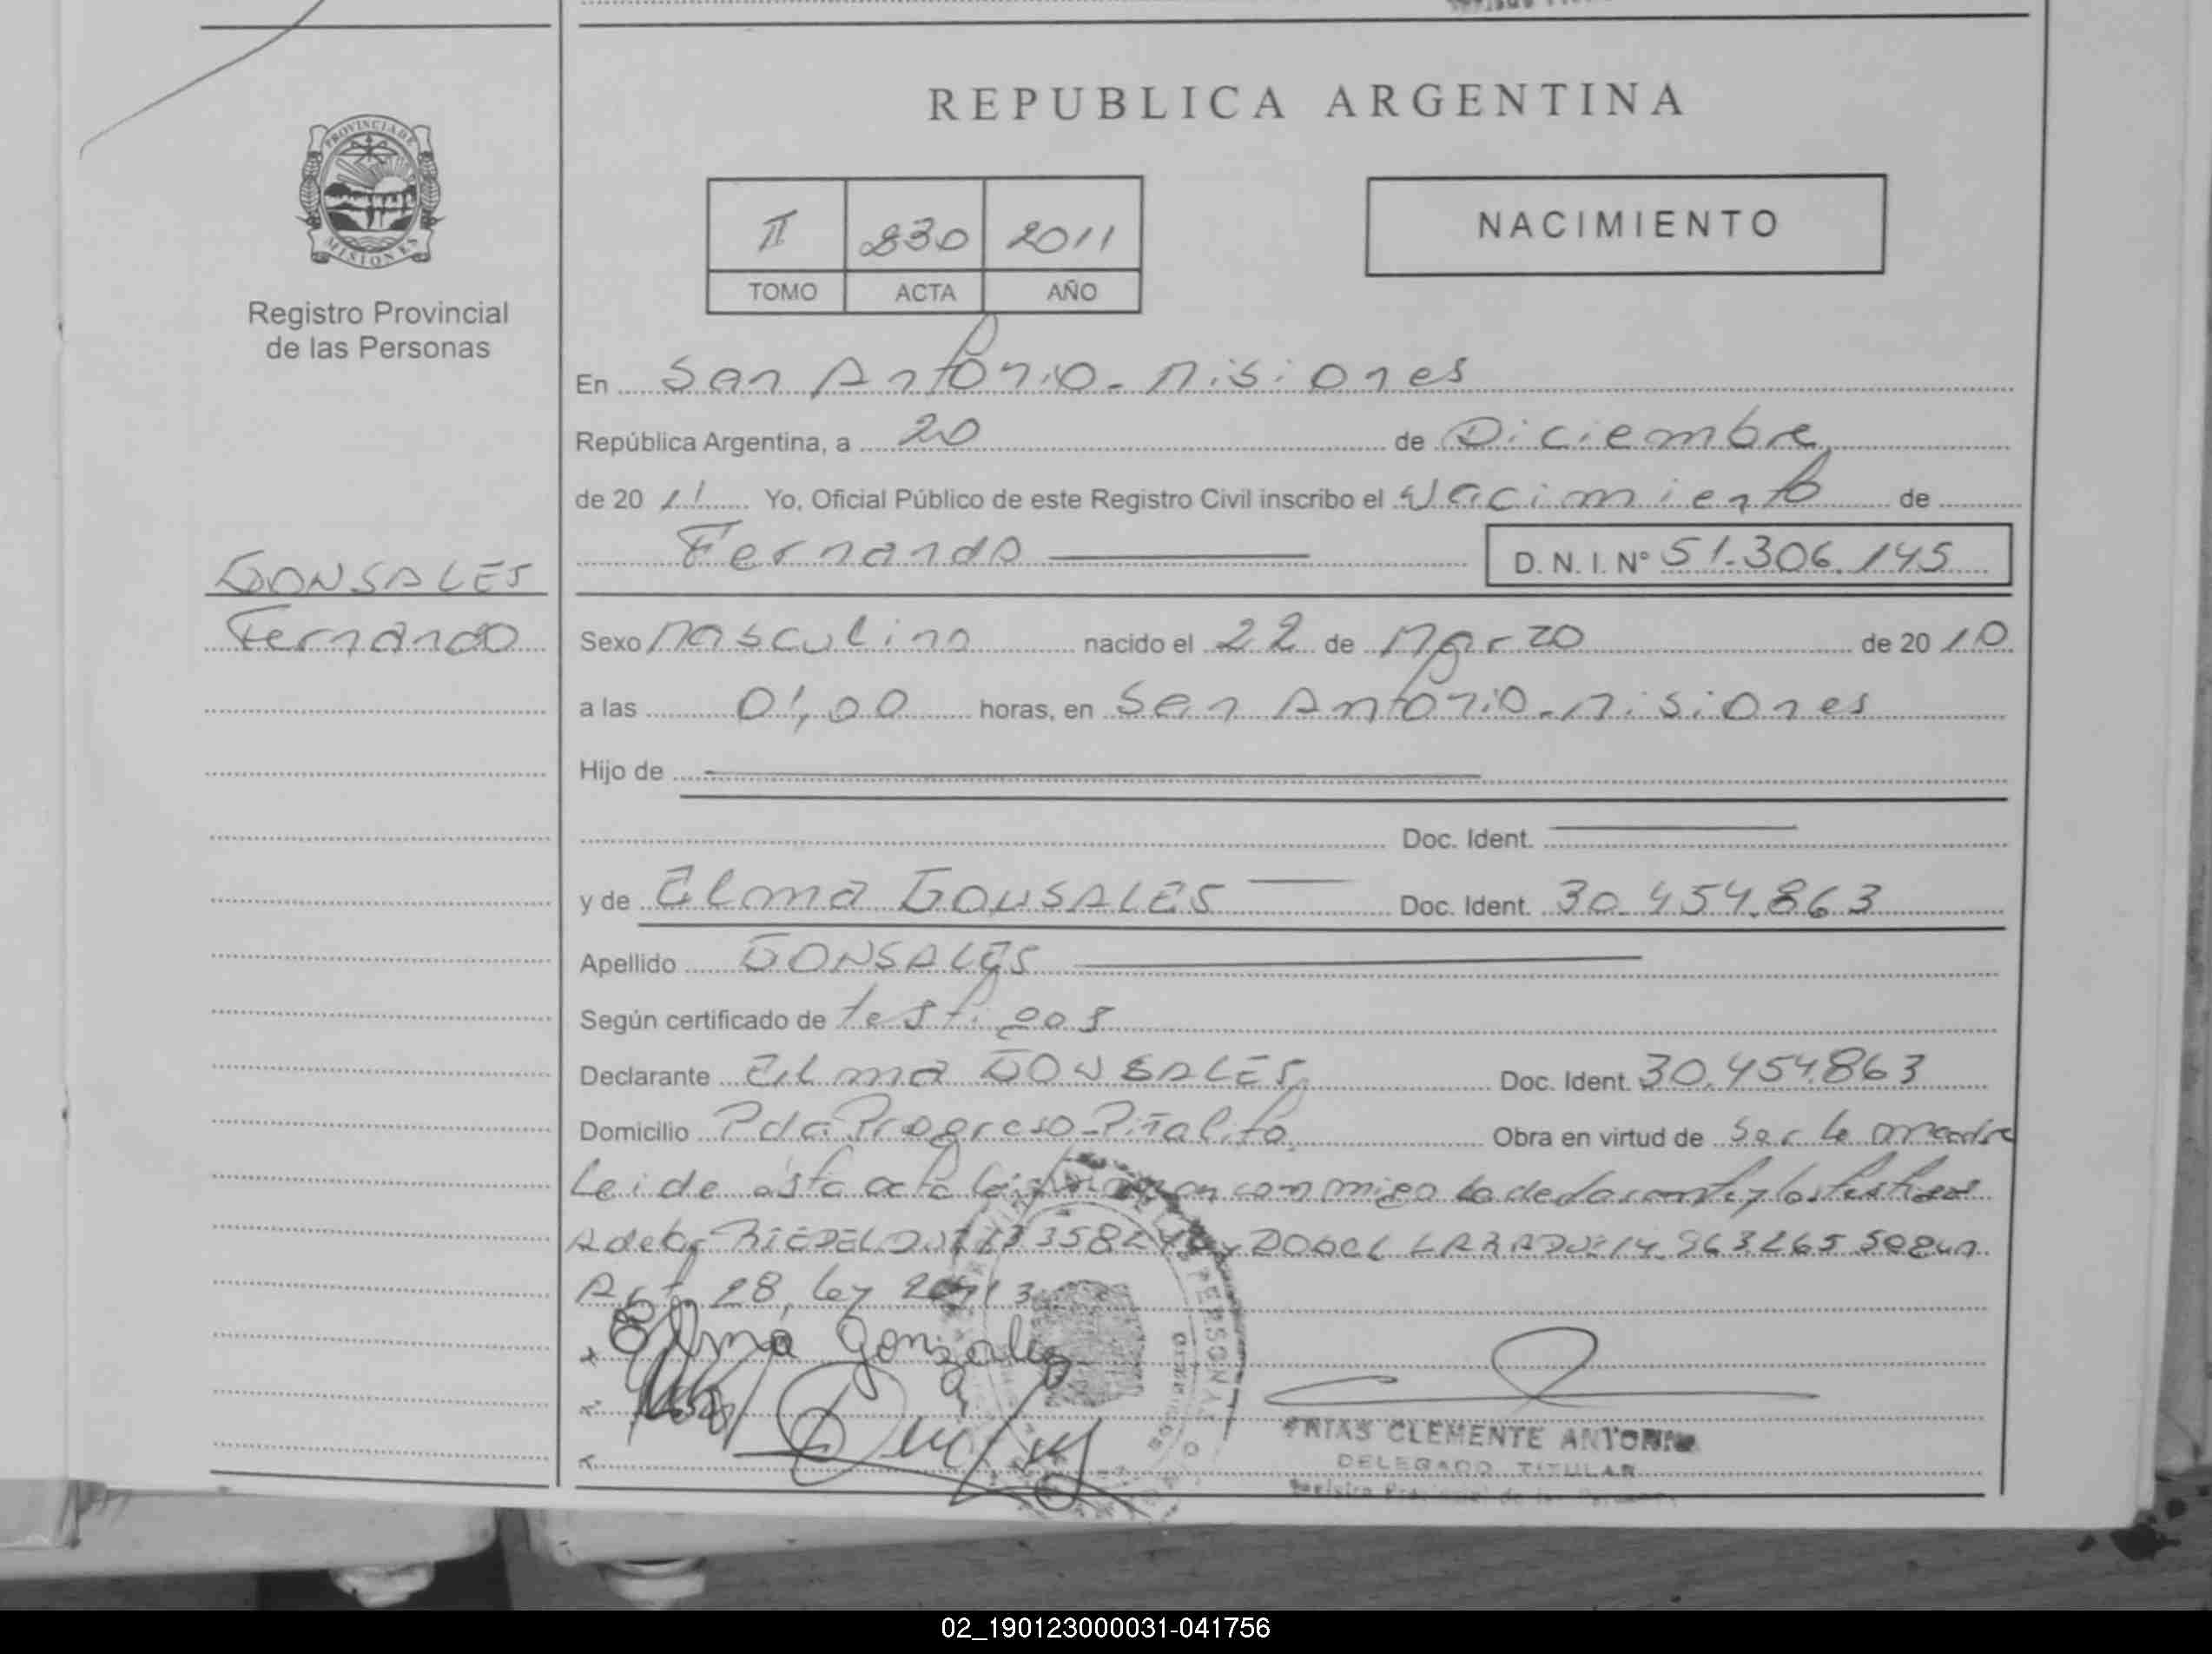 REPUBLICA ARGENTINA
PROVINCIA DE
MISIONES
Registro Provincial
de las Personas
II 830 2011
TOMO ACTA AÑO
NACIMIENTO
En San Antonio - Misiones
República Argentina, a 20 de Diciembre
de 20 11 Yo, Oficial Público de este Registro Civil inscribo el Nacimiento de
Fernando D. N. I. Nº 51.306.145
GONSALES
Fernando
Sexo Masculino nacido el 22 de Marzo de 20 10
a las 01,00 horas, en San Antonio - Misiones
Hijo de
Doc. Ident.
y de Elma GONSALES Doc. Ident. 30.454.863
Apellido GONSALES
Según certificado de testigos
Declarante Elma GONSALES Doc. Ident. 30.454.863
Domicilio Pda Progreso - Piñalito Obra en virtud de Ser la madre
Leida esta acta la conmigo la declarante y los testigos
RIEDEL Segun
Art. 28, ley
Elma Gonzalez
FRIAS CLEMENTE ANTONIO
DELEGADO TITULAR
Registro Provincial de las Personas
02_190123000031-041756